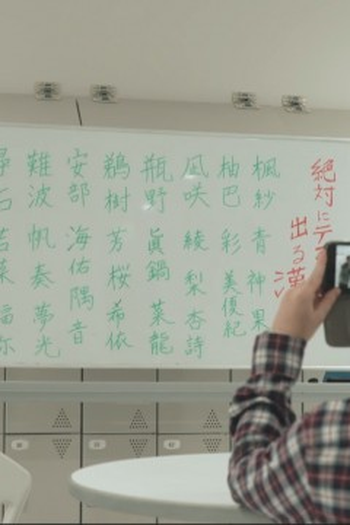 絶対にテ
出る漢
楓紗 青 神果
柚巴 彩 美優紀
凪咲 綾 梨杏詩
瓶野 眞鍋 菜龍
鵜樹 芳桜 希依
安部 海佑 隅音
難波 帆奏 夢光
石